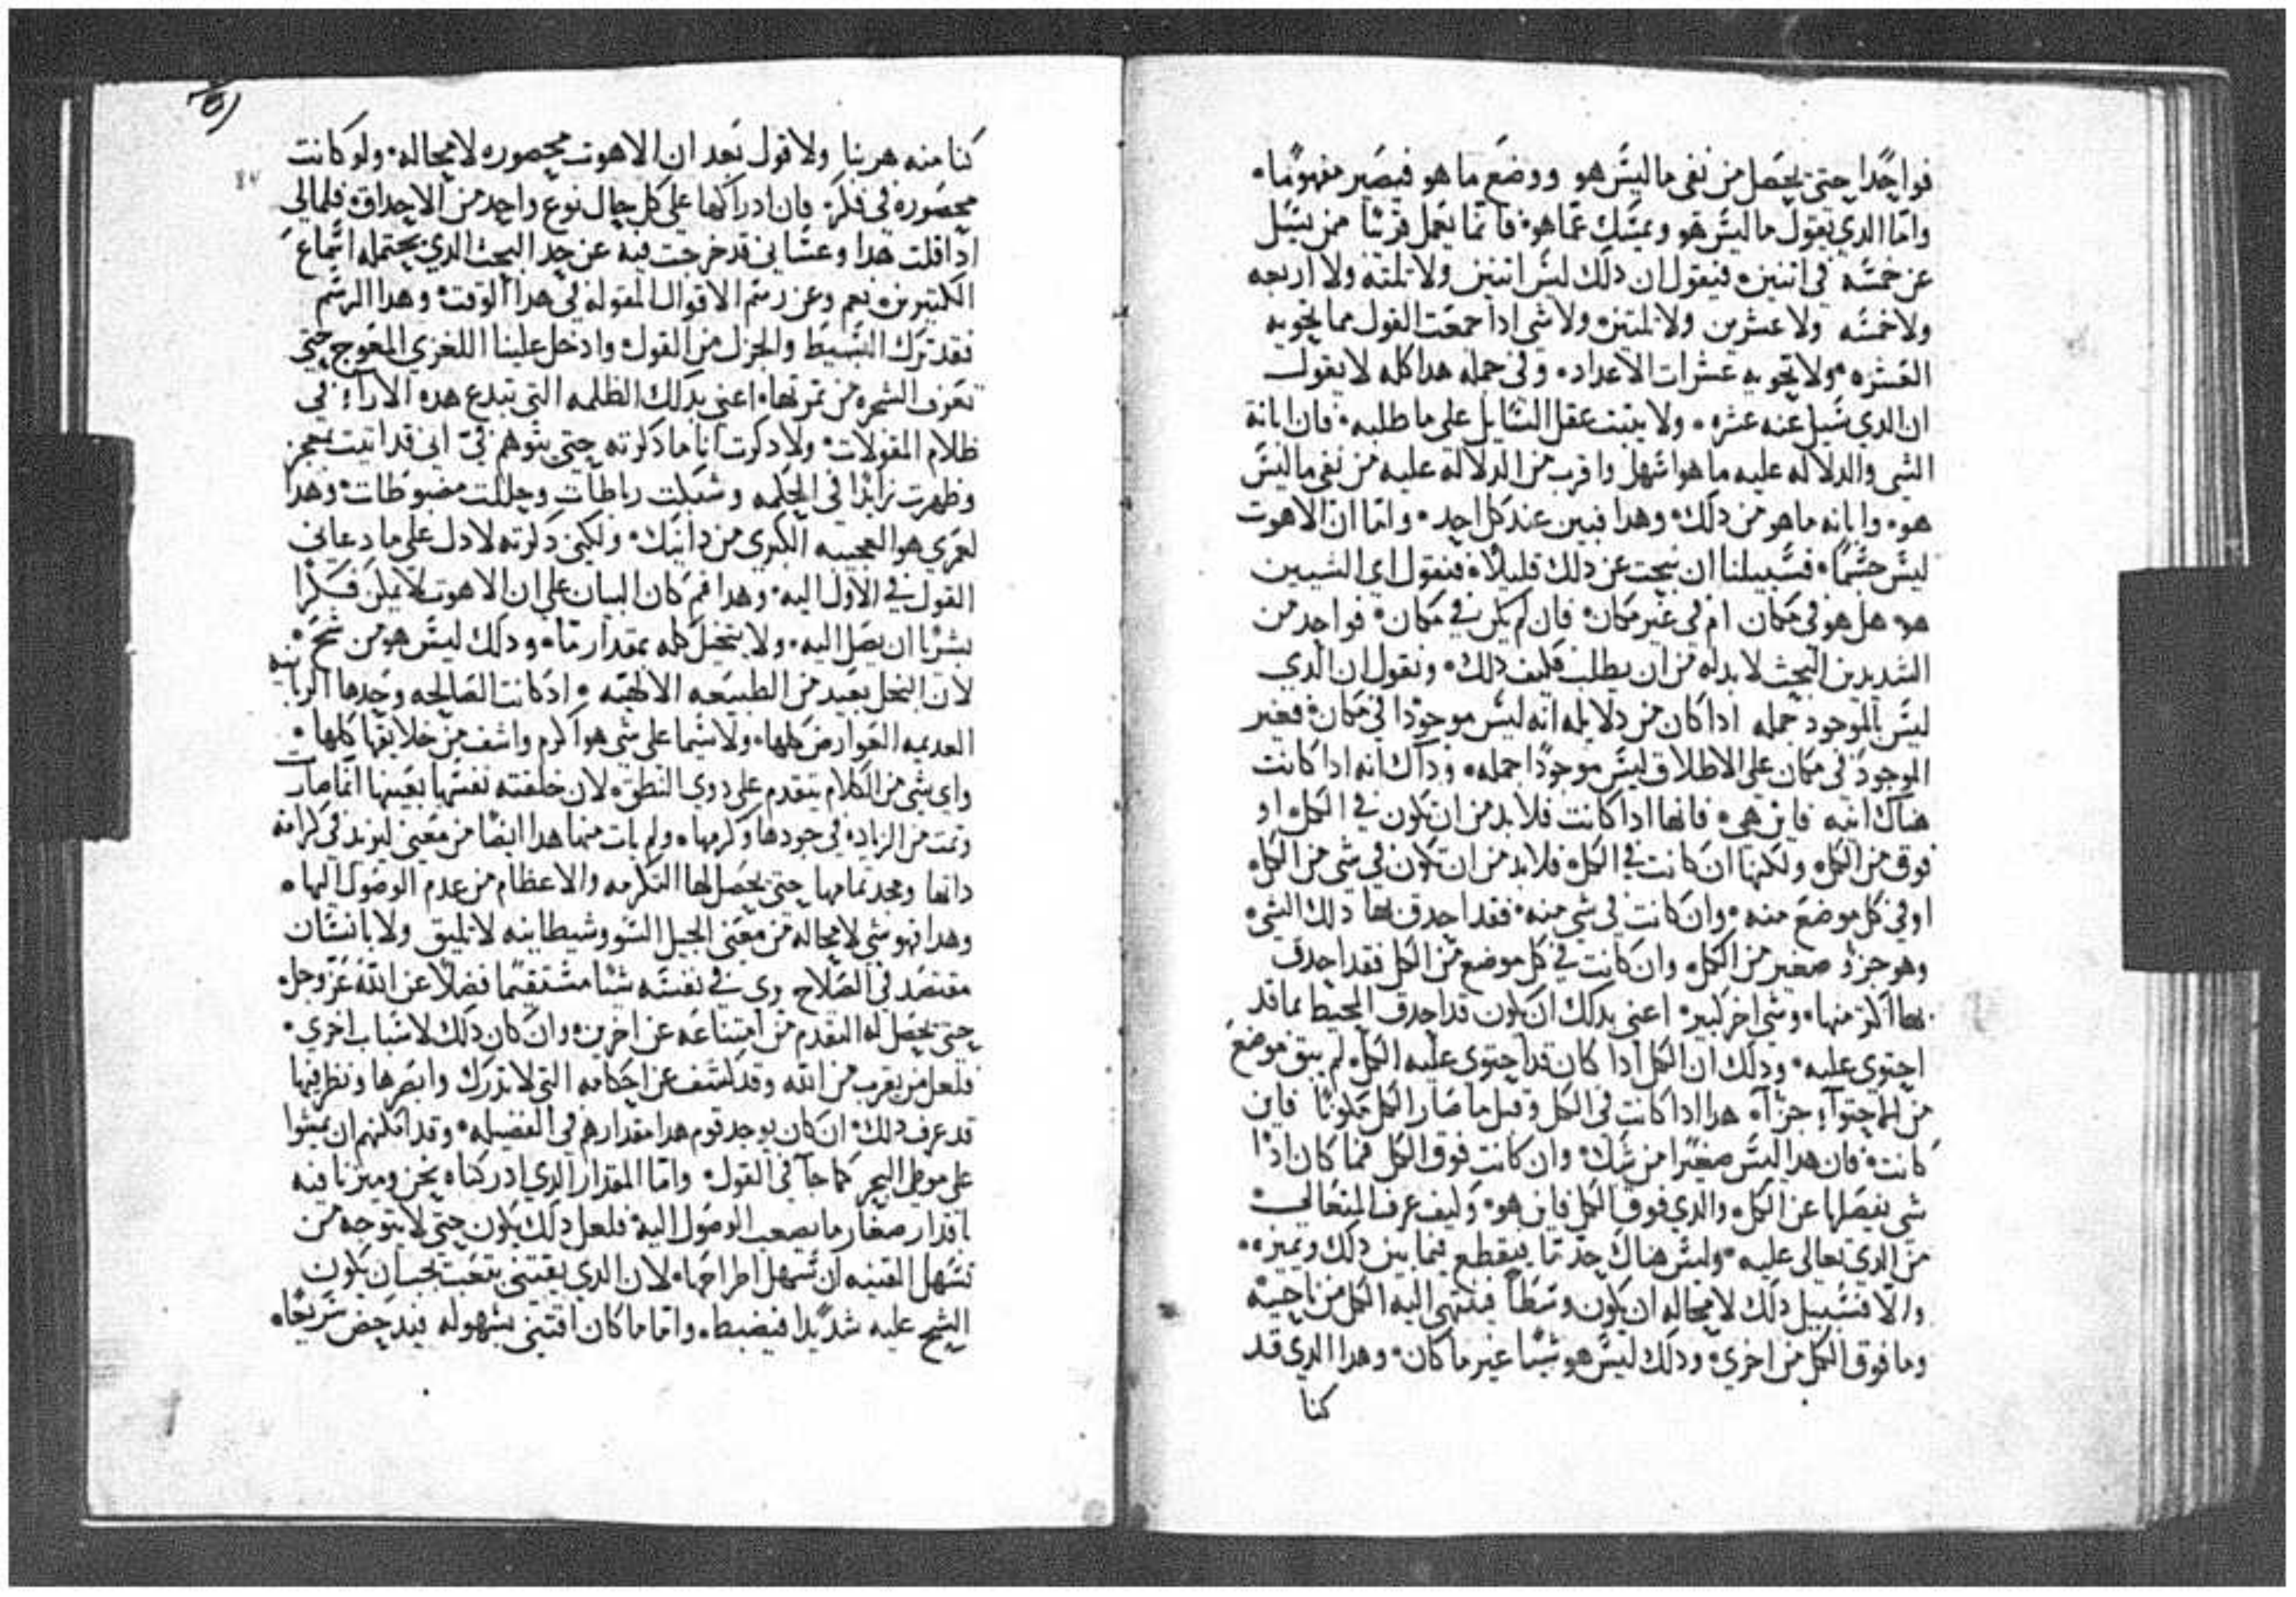 فواحدا حتى يحصل من نفي ما ليس هو ووضع ما هو فيصير مفهوما.
واما الدي يقول ما ليس هو ويمسك عما هو. فانما يعمل قريبا ممن يسل
عن خمسه في اتنين. فيقول ان دلك ليس اتنين ولا تلته ولا اربعه
ولا خمسه ولا عشرين ولا تلتين. ولا شي ادا جمعت القول مما يحويه
العشره. ولا تحويه عشرات الاعداد. وفي جمله هدا كله لا يقول
ان الدي سيل عنه عشره. ولا يتبت عقل السايل على ما طلبه. فان ابانة
الشي والدلاله عليه ما هو اسهل واقرب من الدلالة عليه من نفي ما ليس
هو. وابانه ما هو من دلك. وهدا فبين عند كل احد. واما ان الاهوت
ليس جسما. فسبيلنا ان نبحت عن دلك قليلا. فنقول اي الشيين
هو. هل هو في مكان ام في غير مكان. فان لم يكن في مكان. فواحد من
الشديدين البحث لا بد له من ان يطلب كيف دلك. ونقول ان الدي
ليس بالموجود جمله ادا كان من دلايله انه ليس موجودا في مكان. فغير
الموجود في مكان على الاطلاق ليس موجودا جمله. وداك انه ادا كانت
هناك انيه فاين هي. فانها ادا كانت فلا بد من ان تكون في الكل. او
فوق من الكل. ولكنها ان كانت في الكل. فلا بد من ان تكون في شي من الكل.
او في كل موضع منه. وان كانت في شي منه. فقد احدق بها دلك الشي.
وهو جزو صغير من الكل. وان كانت في كل موضع من الكل فقد احدق
بها اكتر منها. وشي اخر كبير. اعني بدلك ان يكون قد احدق المحيط بما قد
احتوى عليه. ودلك ان الكل ادا كان قد احتوى عليه الكل. لم يبق موضع
من احتوآ جزآ. هدا ادا كانت في الكل وقبل ما صار الكل مكونا فاين
كانت. فان هدا ليس صغيرا من شك. وان كانت فوق الكل فما كان ادا
شي يفصلها عن الكل. والدي فوق الكل فاين هو. وكيف عرف المتعالي
من الدي تعالى عليه. وليس هناك حد ما يقطع فيما بين دلك ويميزه.
والا فسبيل دلك لا محاله ان يكون وسطا فينتهي اليه الكل من ناحيه
وما فوق الكل من اخرى. ودلك ليس هو شيا غير مكان. وهدا الدي قد
كنا
كنا منه هربنا ولا قول بعد ان الاهوت محصوره لا محاله. ولو كانت
محصوره في فكر. فان ادراكها على كل حال نوع واحد من الاحداق. فلما لي
ادا قلت هدا وعساني قد خرجت فيه عن حد البحث الدي يحتمله استماع
الكتيرين. نعم وعن رسم الاقوال المقوله في هدا الوقت. وهدا الرسم
فقد ترك البسيط والجزل من القول. وادخل علينا اللغزي المعوج حتى
تعرف الشجره من تمرتها. اعني بدلك الظلمه التي تبدع هده الاراآ. في
ظلام المقولات. ولا دكرت انا ما دكرته حتى يتوهم في اني قد اتيت بمعجز
وظهرت زايدا في الحكمه وشبكت رباطات وحللت مضبوطات. وهدا
لعمري هو العجيبه الكبرى من دانيال. ولكني دكرته لادل على ما دعاني
القول في الاول اليه. وهدا فم كان البيان على ان الاهوت لا يمكن فكرا
بشريا ان يصل اليه. ولا يتخيل كله بمقدار ما. ودلك ليس هو من شح.
لان البخل بعيد من الطبيعه الالهيه. اد كانت الصالحه وحدها الربانيه
العديمه العوارض كلها. ولا سيما على شي هو اكرم واشف من خلايقها كلها.
واي شي من الكلام يتقدم على دوي النطق. لان خلقته نفسها بعينها انما صارت
وتمت من الزياده في جودها وكرمها. ولم يات منها هدا ايضا من معنى ليزيد في كرامه
داتها ومجد تمامها حتى يحصل لها التكرمه والاعظام من عدم الوصول اليها.
وهدا فهو شي لا محاله من معنى الحيل السو وشيطانيه لا تليق ولا بانسان
مقتصد في الصلاح رى في نفسه شيا مستقيما فضلا عن الله عز وجل.
حتى يحصل له التقدم من امتناعه عن اخرين. وان كان دلك لاسباب اخرى.
فلعل من يقرب من الله وقد كشف عن احكامه التي لا تدرك وابصرها ونظر فيها
قد عرف دلك. ان كان يوجد قوم هدا مقدارهم في الفضيله. وقد امكنهم ان يمشوا
على موطى البحر كما جآ في القول. واما المقدار الدي ادركناه نحن وميزنا فيه
باقدار صغار ما يصعب الوصول اليه. فلعل دلك يكون حتى لا يتوجه من
تسهل القنيه ان تسهل اطراحها. لان الدي يقتنى بتعب يجب ان يكون
الشح عليه شديدا فيضبط. واما ما كان اقتني بسهوله فيدحض سريعا.